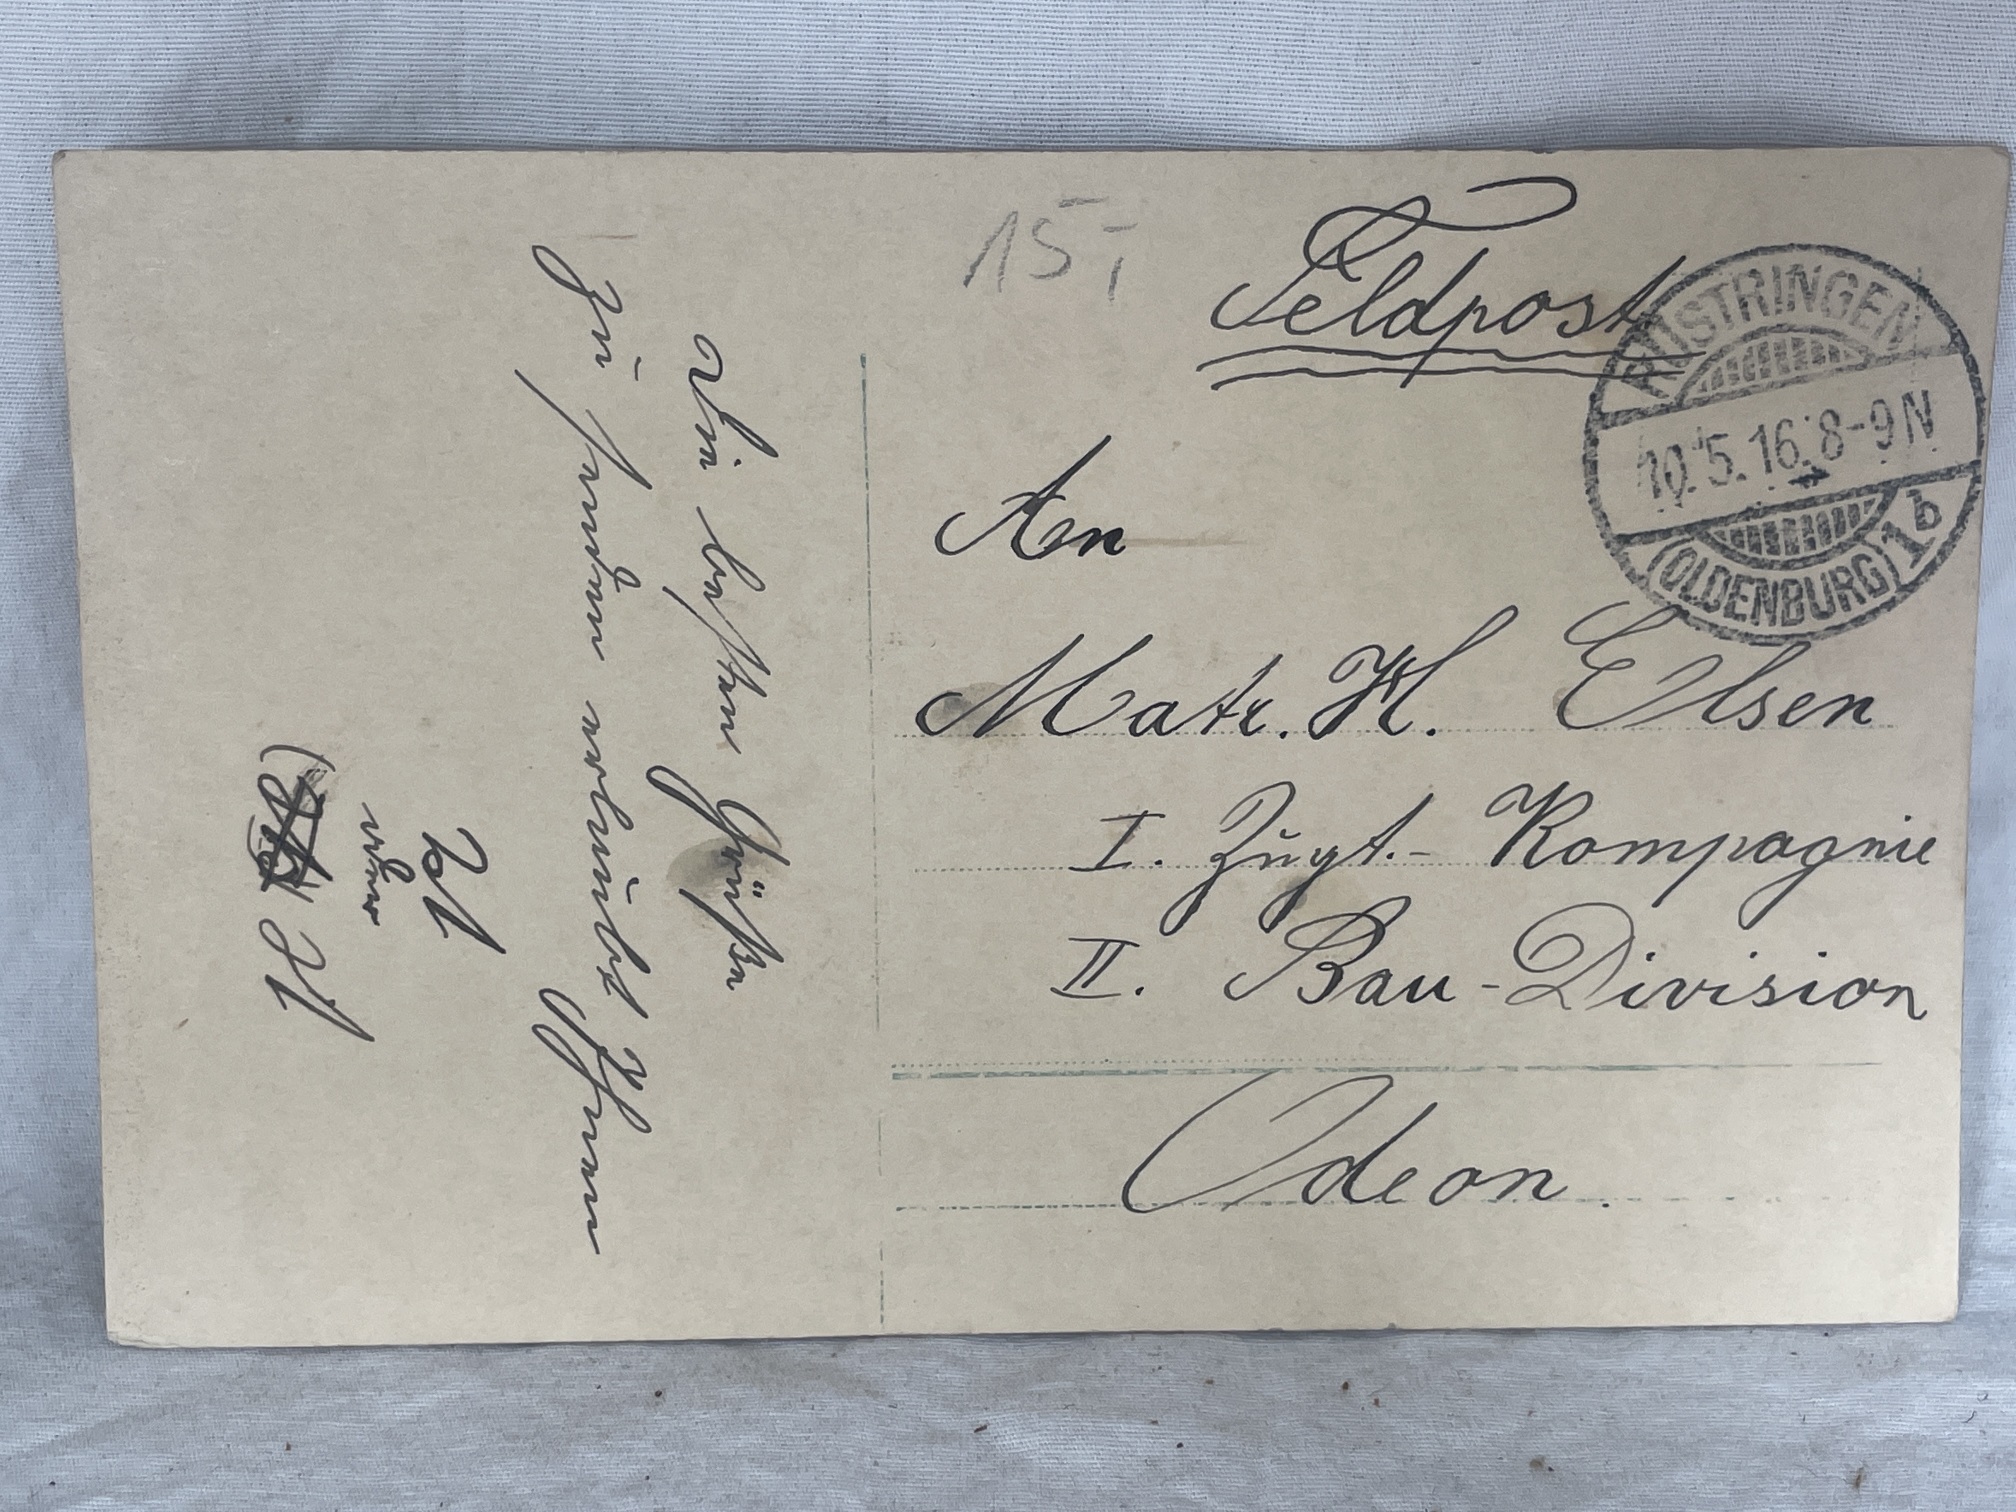 15,-
Feldpost
RÜSTRINGEN
10.5.16. 8-9 N
(OLDENBURG) 1b
An
Matr. H. Elsen
I. Zugt.- Kompagnie
II. Bau-Division
Odeon.
Die besten Grüßen
zu senden erlaubt
H
oder
H